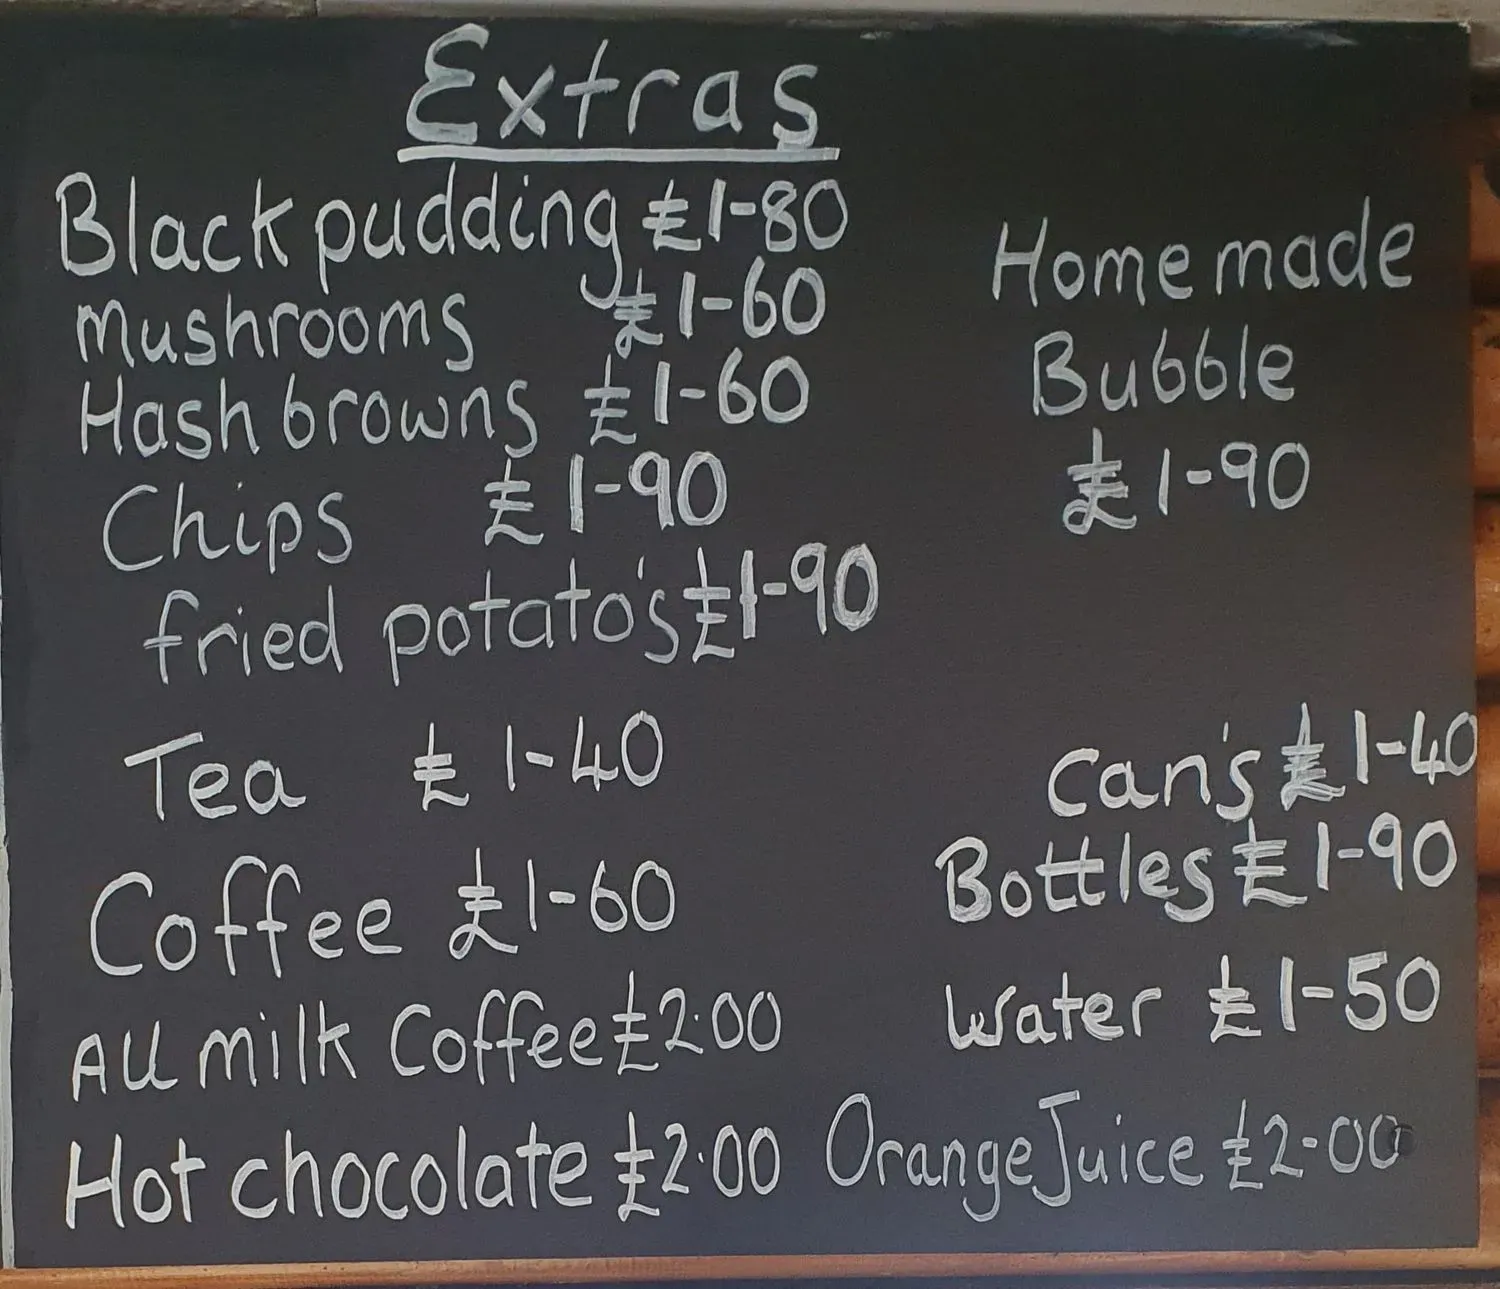 Extras
Black pudding £1-80
mushrooms £1-60
Hash browns £1-60
Chips £1-90
fried potato's £1-90
Home made
Bubble
£1-90
Tea £1-40
Coffee £1-60
All milk Coffee £2.00
Hot chocolate £2.00
Can's £1-40
Bottles £1-90
Water £1-50
Orange Juice £2-00